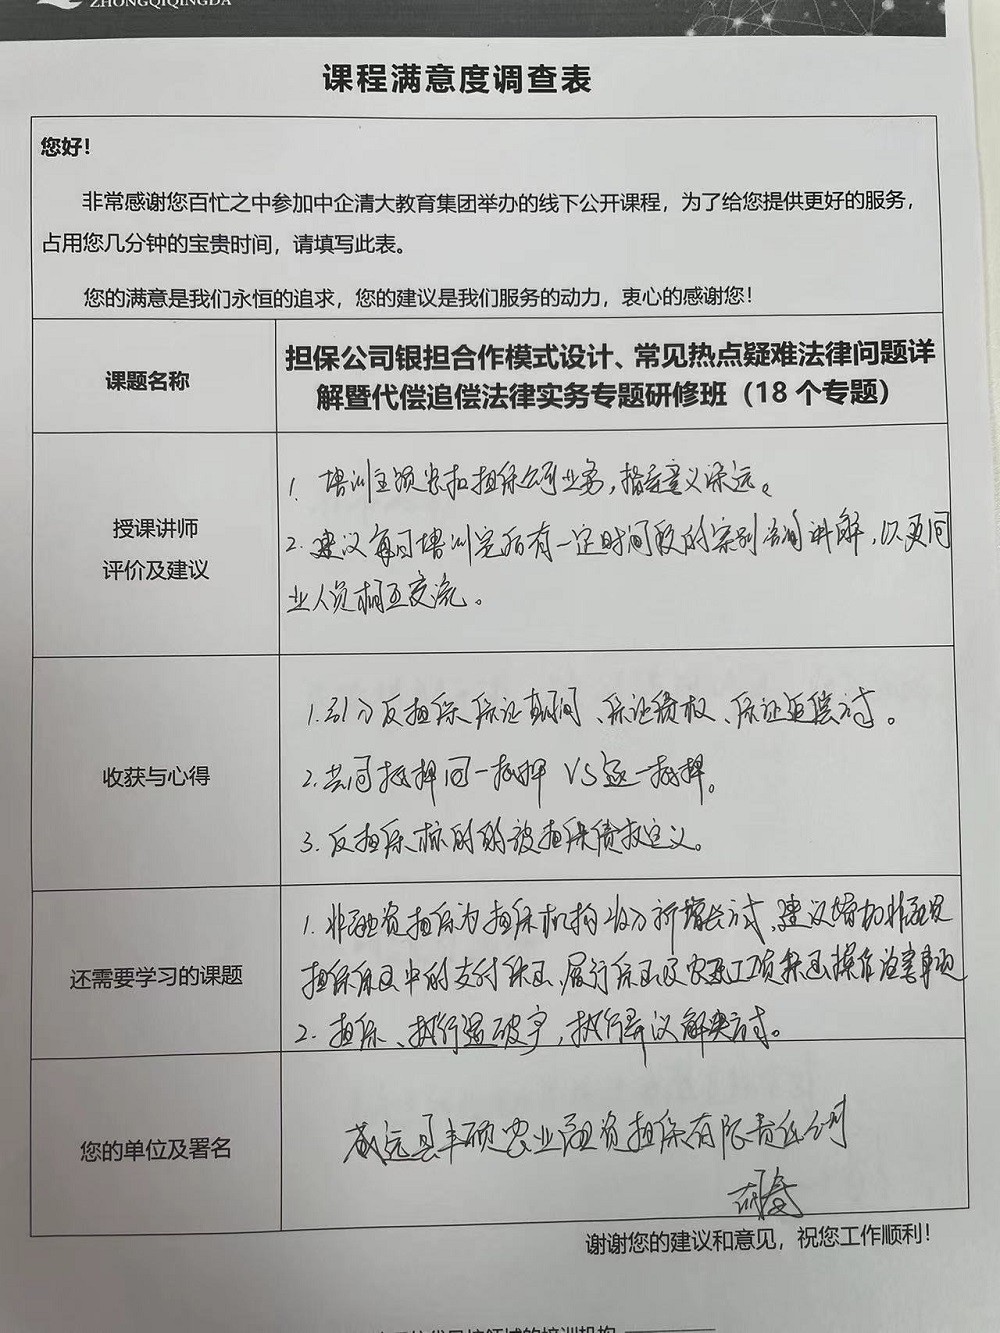 ZHONGQIQINGDA
课程满意度调查表
您好！
非常感谢您百忙之中参加中企清大教育集团举办的线下公开课程，为了给您提供更好的服务，
占用您几分钟的宝贵时间，请填写此表。
您的满意是我们永恒的追求，您的建议是我们服务的动力，衷心的感谢您！
课题名称
担保公司银担合作模式设计、常见热点疑难法律问题详
解暨代偿追偿法律实务专题研修班（18个专题）
授课讲师
评价及建议
1. 培训主题紧扣担保公司业务，指导意义深远。
2. 建议每日培训完后有一定时间段的案例咨询讲解，以更同
业人员相互交流。
收获与心得
1. 反担保保证期间、保证债权、保证追偿方式。
2. 共同抵押同一抵押 VS 逐一抵押。
3. 反担保标的的被担保债权定义。
还需要学习的课题
1. 非融资担保为担保机构收入新增长方式，建议增加非融资
担保保函中的支付保函、履行保函及农民工工资保函操作注意事项
2. 担保、执行遇破产，执行异议解决方式。
您的单位及署名
威远县丰硕农业融资担保有限责任公司
谢谢您的建议和意见，祝您工作顺利！